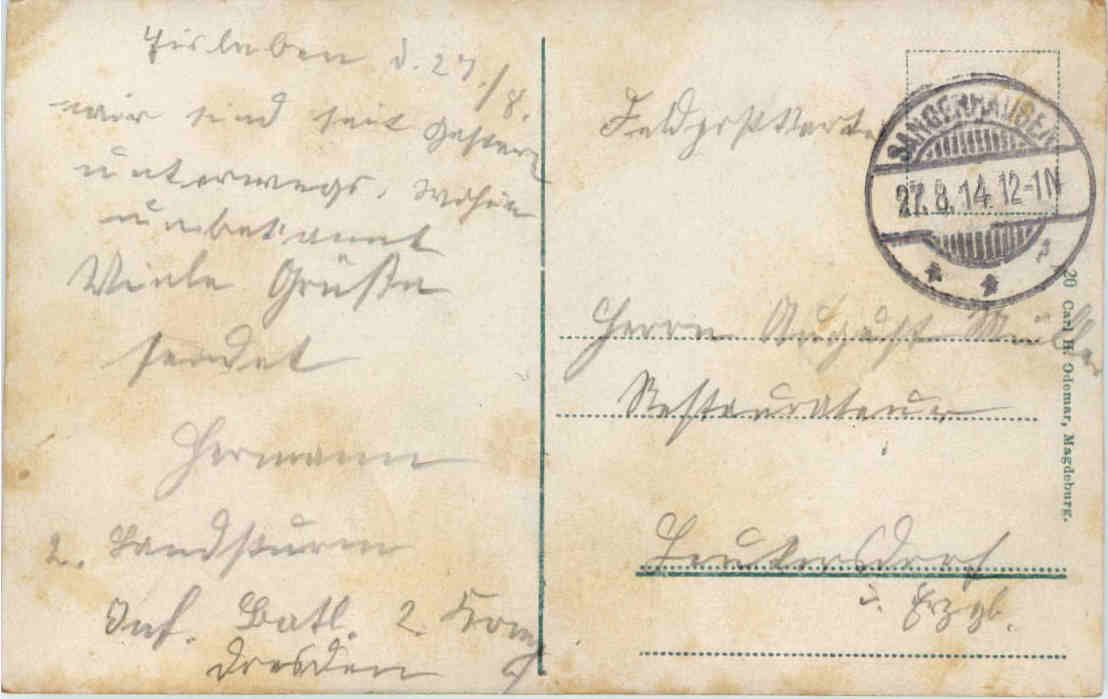 Eisleben d. 27./8.
wir sind seit gestern
unterwegs, wohin
unbekannt
Viele Grüße
sendet
Hermann
2. Landsturm
Inf. Batl. 2 Komp
Dresden
Feldpostkarte
SANGERHAUSEN
27.8.14.12-1N
Herrn August Müller
Restaurateur
Leukersdorf
i. Erzgb.
20 Carl H. Odemar, Magdeburg.